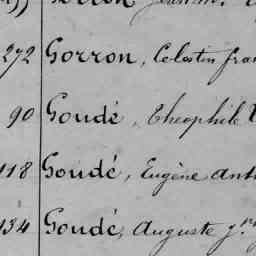 272 Gorron, Celestin fran
90 Goudé, Théophile
118 Goudé, Eugène Ant
134 Goudé, Auguste